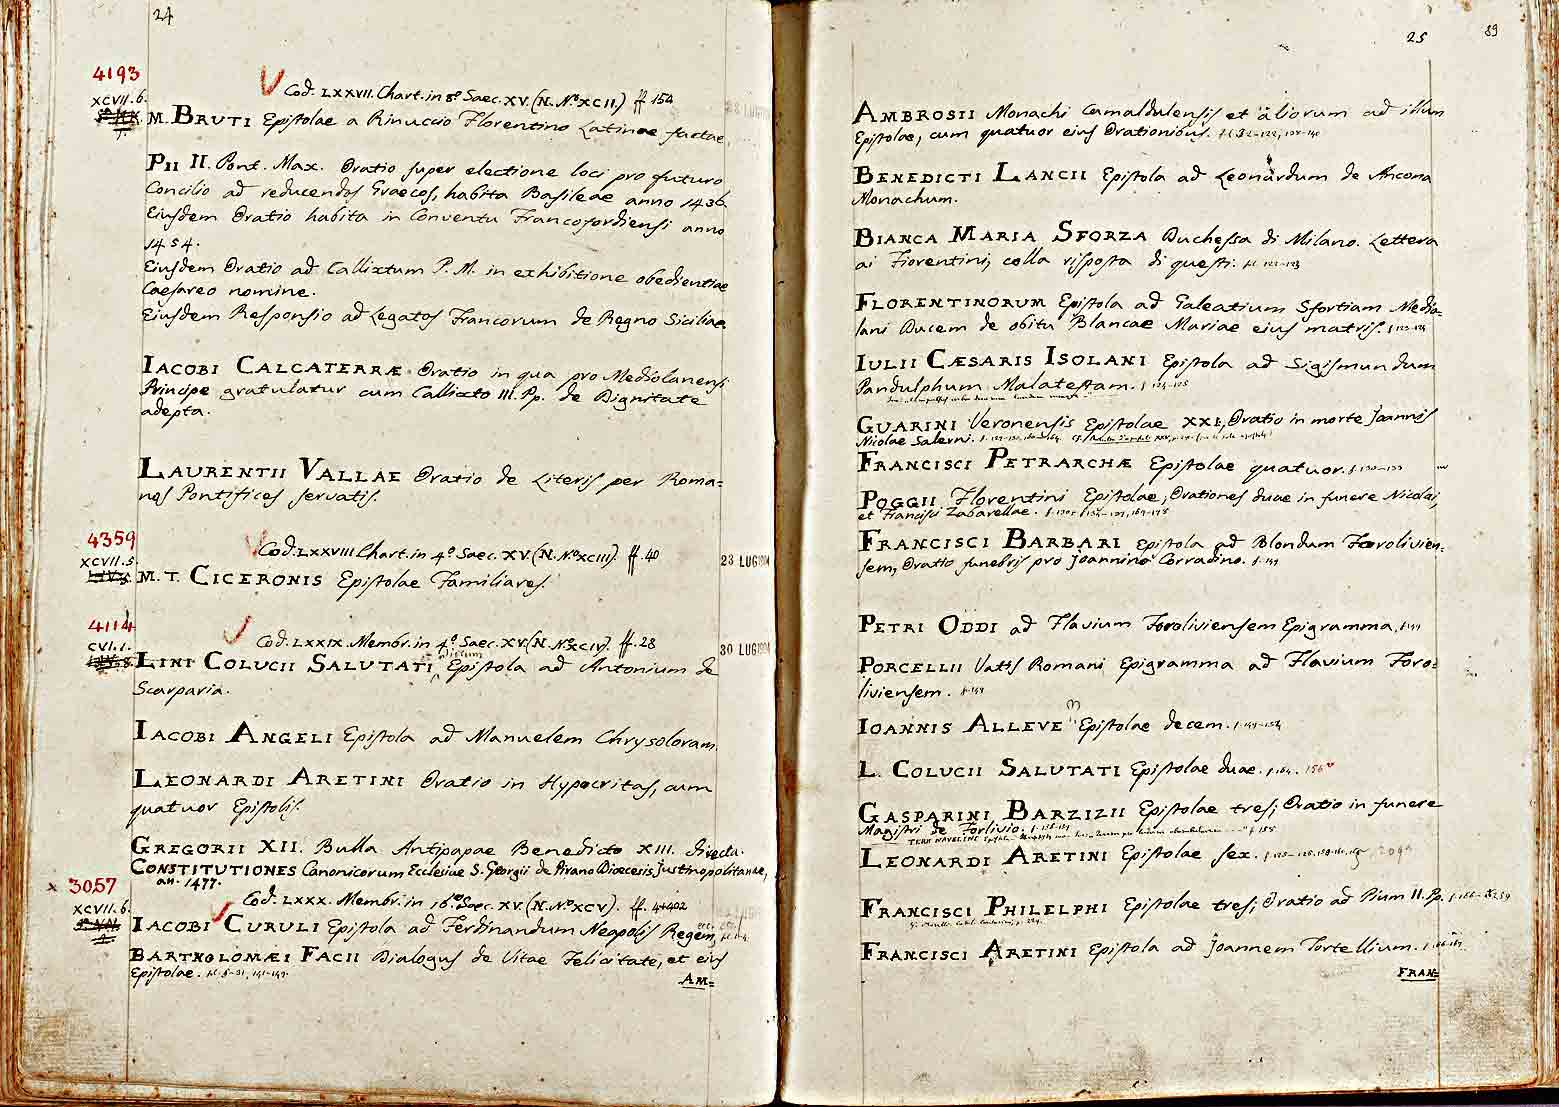 24
4193
Cod. LXXVII. Chart. in 8º Saec. XV. (N. Nº XCII.) ff 154
XCVII. 6.
M. BRUTI Epistolae a Rinuccio Florentino Latinae factae.
PII II. Pont. Max. Oratio super electione loci pro futuro
Concilio ad reducendos Graecos, habita Basileae anno 1436.
Eiusdem Oratio habita in Conventu Francofordiensi anno
1454.
Eiusdem Oratio ad Callixtum P. M. in exhibitione obedientiae
Caesareo nomine.
Eiusdem Responsio ad Legatos Francorum de Regno Siciliae
IACOBI CALCATERRÆ Oratio in qua pro Mediolanensi
Principe gratulatur cum Callixto III. Pp. de Dignitate
adepta.
LAURENTII VALLAE Oratio de Literis per Roma=
nos Pontifices servatis.
4359
Cod. LXXVIII Chart. in 4º Saec. XV. (N. Nº XCIII) ff. 40
23 LUG
XCVII. 5.
M. T. CICERONIS Epistolae Familiares.
4114
Cod. LXXIX. Membr. in 4º Saec. XV. (N. Nº XCIV) ff. 28
30 LUG
CVI. 1.
LINI COLUCII SALUTATI Epistola ad Antonium de
Scarparia.
IACOBI ANGELI Epistola ad Manuelem Chrysoloram.
LEONARDI ARETINI Oratio in Hypocritas, cum
quatuor Epistolis.
GREGORII XII. Bulla Antipapae Benedicto XIII. directa.
CONSTITUTIONES Canonicorum Ecclesiae S. Georgii de Pirano Dioecesis Justinopolitanae,
an. 1477.
x 3057
Cod. LXXX. Membr. in 16º Saec. XV. (N. Nº XCV). ff.
XCVII. 6.
IACOBI CURULI Epistola ad Ferdinandum Neapolis Regem
BARTHOLOMÆI FACII Dialogus de Vitae Felicitate, et eius
Epistolae.
AM=
25
89
AMBROSII Monachi Camaldulensis et aliorum ad illum
Epistolae, cum quatuor eius Orationibus.
BENEDICTI LANCII Epistola ad Leonardum de Ancona
Monachum.
BIANCA MARIA SFORZA Duchessa di Milano. Lettera
ai Fiorentini, colla risposta di questi.
FLORENTINORUM Epistola ad Galeatium Sfortiam Medio=
lani Ducem de obitu Blancae Mariae eius matris.
IULII CÆSARIS ISOLANI Epistola ad Sigismundum
Pandulphum Malatestam.
GUARINI Veronensis Epistolae XXI, Oratio in morte Joannis
Nicolae Salerni.
FRANCISCI PETRARCHÆ Epistolae quatuor.
POGGII Florentini Epistolae, Orationes duae in funere Nicolai,
et Francisci Zabarellae.
FRANCISCI BARBARI Epistola ad Blondum Forolivien=
sem, Oratio funebris pro Joannino Corradino.
PETRI ODDI ad Flavium Foroliviensem Epigramma.
PORCELLII Vatis Romani Epigramma ad Flavium Foro=
liviensem.
IOANNIS ALLEVE Epistolae decem.
L. COLUCII SALUTATI Epistolae duae.
GASPARINI BARZIZII Epistolae tres; Oratio in funere
Magistri de Forlivio.
LEONARDI ARETINI Epistolae sex.
FRANCISCI PHILELPHI Epistolae tres; Oratio ad Pium II. Pp.
FRANCISCI ARETINI Epistola ad Joannem Tortellium.
FRAN=